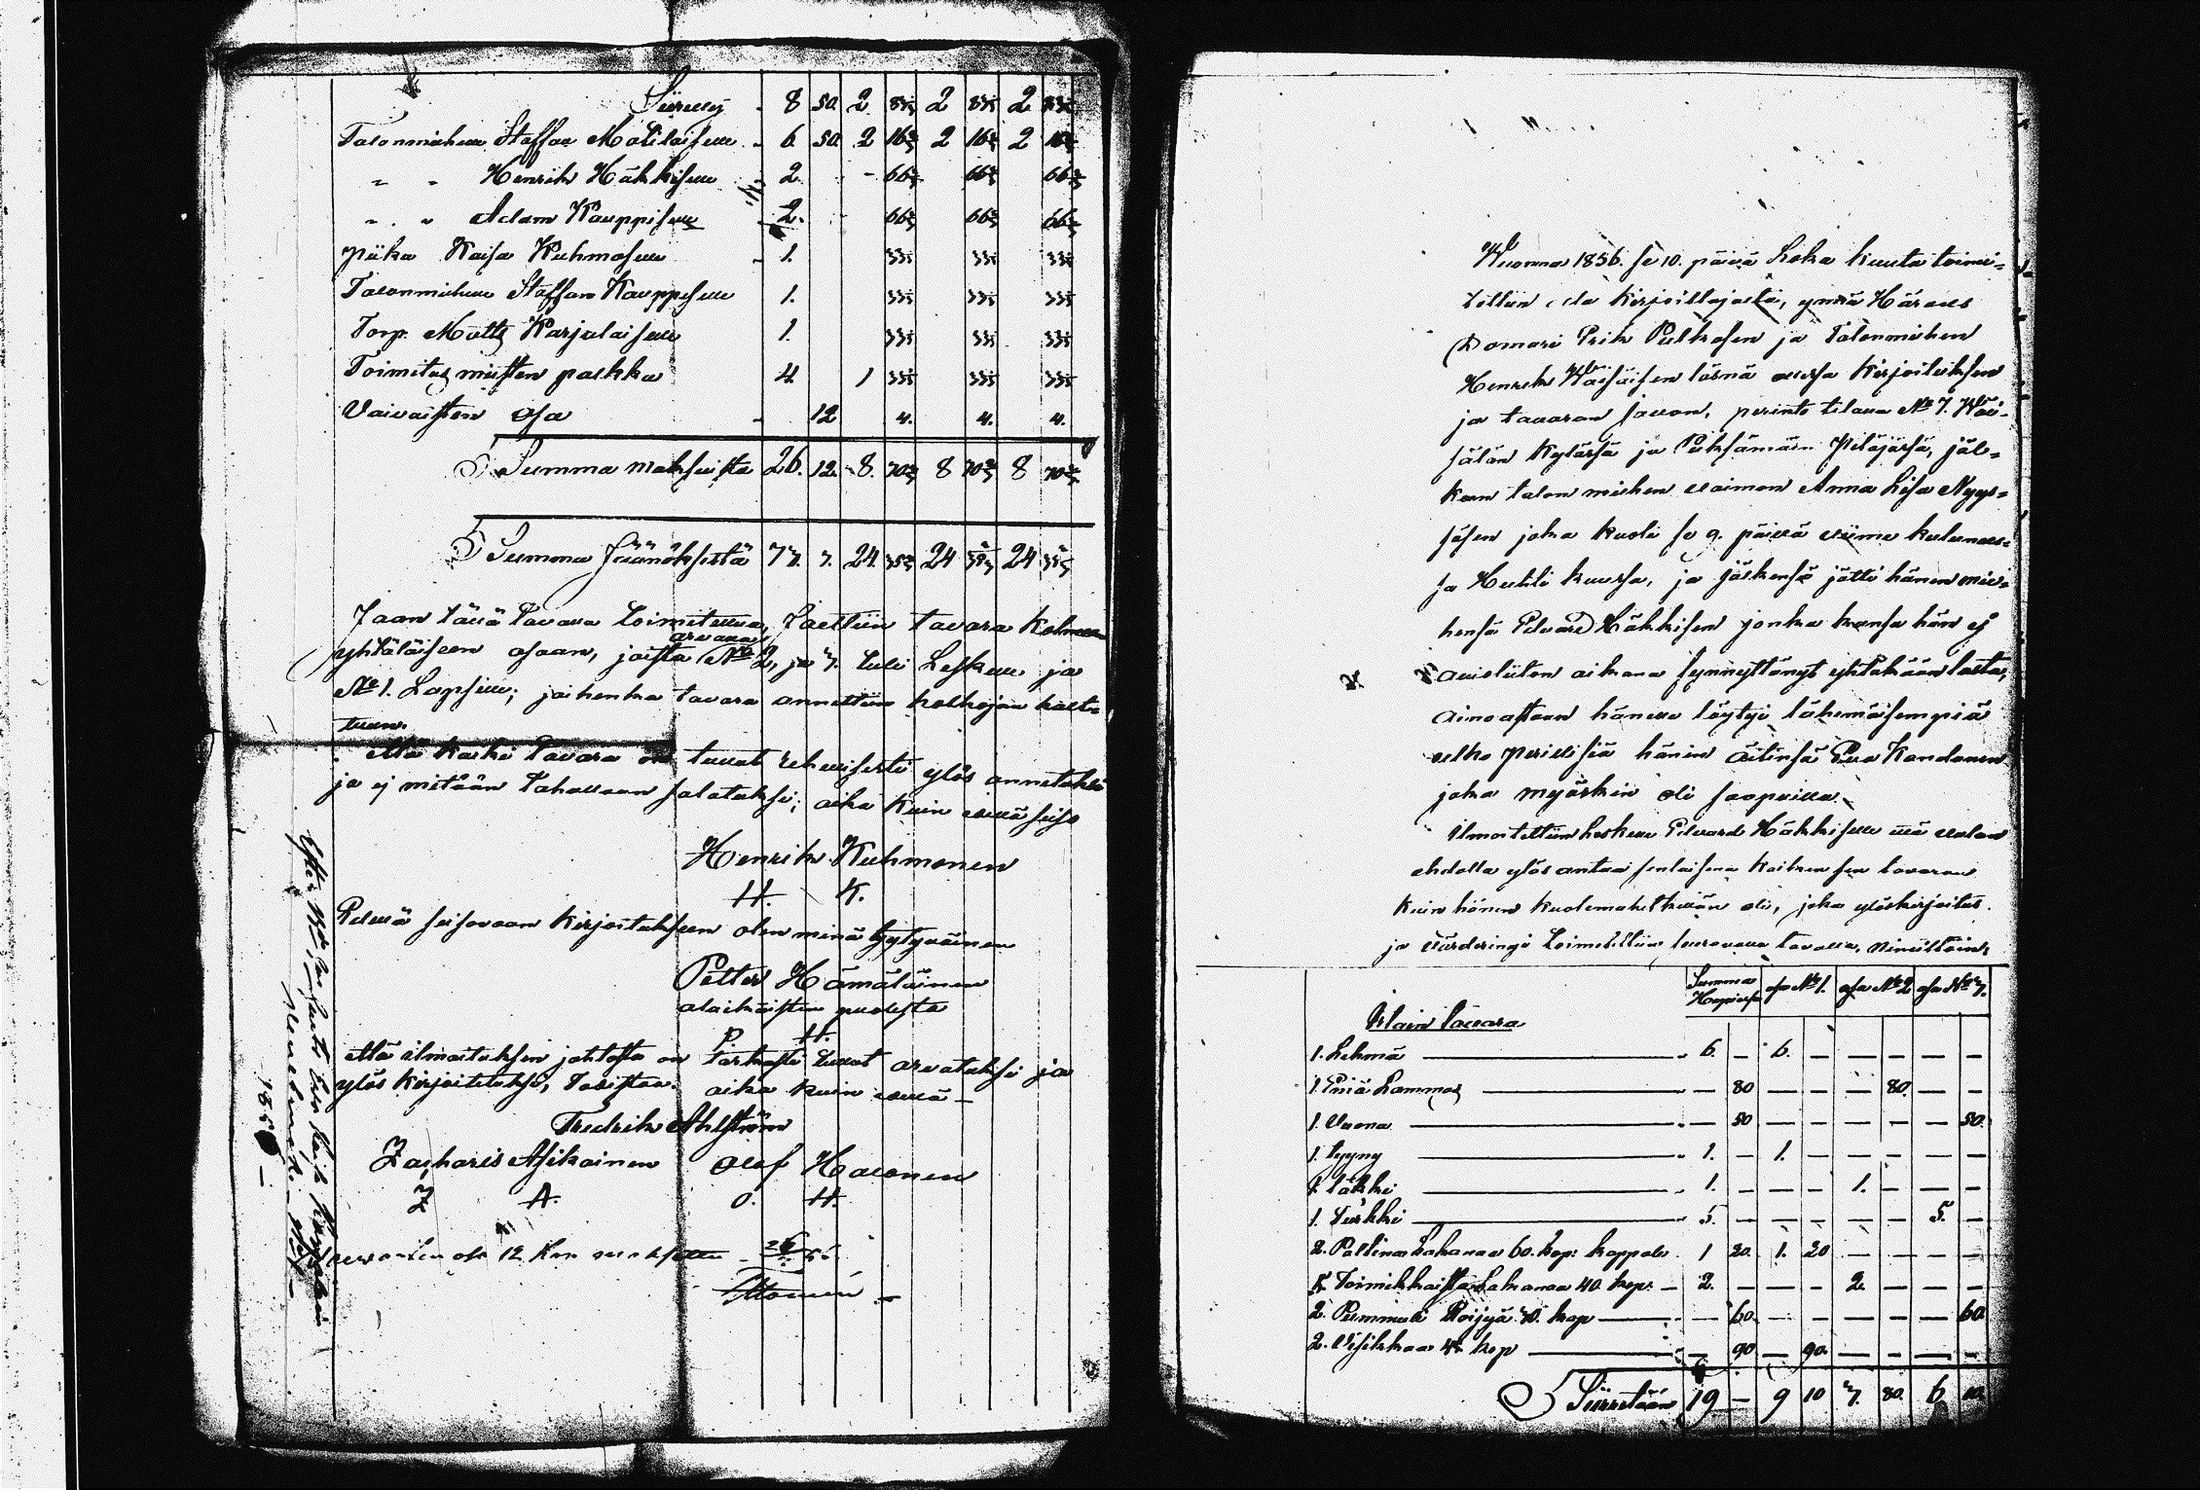 Siirretty 8 50. 2 83⅓ 2 83⅓ 2 83⅓
Talonmiehen Staffan Matilaisen 6. 50. 2 16⅔ 2 16⅔ 2 16⅔
" " Henrik Häkkisen 2. 66⅔ 66⅔ 66⅔
" " Adam Kauppisen 2. 66⅔ 66⅔ 66⅔
piika Kaisa Kuhmosen 1. 33⅓ 33⅓ 33⅓
Talonmiehen Staffan Kauppisen 1. 33⅓ 33⅓ 33⅓
Torp. Matts Karjalaisen 1. 33⅓ 33⅓ 33⅓
Toimitus miesten palkka 4. 1 33⅓ 33⅓ 33⅓
Vaivaisten osa 12 4. 4. 4.
Summa maksuista 26. 12. 8. 70⅔ 8 70⅔ 8 70⅔
Summa Jäänöksistä 73. 7. 24. 24 24
Jaon tällä tavalla toimitettua, Jaettiin tavara kolmeen
yhtäläiseen osaan, joista arvalla No 2, ja 3. tuli Leskelle ja
No 1. Lapsille; joihenka tavara annettiin holhojan halt-
tuun.
Että kaikki tavara on tullut rehellisesti ylös annetuksi
ja ej mitään tahallaan salatuksi; aika kuin ennen seiso
Henrik Kuhmonen
H. K.
Edellä seisovaan kirjoitukseen olen minä tytyväinen
Petter Hämäläinen
alaikäisten puolesta
P. H.
Että ilmoituksen johtosta on tarkasti tullut arvatuksi ja
ylös kirjoitetuksi, Todistaa. aika kuin ennen
Fredrik Ahlström
Zacharis Asikainen Olof Halonen
Z A. O. H.
Wuonna 1856. se 10. päivä Loka kuuta toimi-
tettiin ala kirjoittajalta, ynnä Häradis
Domari Erik Pulkosen ja Talonmiehen
Henrik Väisäisen läsnä ollessa kirjoituksen
ja tavaran jaon, perinto tilalla No 7. Väi-
sälän kylässä ja Pieksämäen Pitäjässä, jäl-
keen talon miehen vaimon Anna Lisa Nyys-
sösen joka kuoli se 9. päivä viime kulunees-
sa Huhti kuussa, ja jälkensä jätti hänen mie-
hensä Edvard Häkkisen jonka kansa hän ej
avioliiton aikana synnyttänyt yhtäkään lasta,
Ainoastaan hänelle löytyi lähimäisempiä
velka perillisiä hänen äitinsä Eva Kondanen
joka myöskin oli saapuilla.
Ilmoitettiin Leskelle Edvard Häkkiselle että valan
ehdolla ylös antaa senlaisena kaiken sen tavaran
kuin hänen kuolemahetkellän oli, joka ylöskirjoitus
ja värderingi toimitettiin seuraavalla tavalla, nimittäin:
Summa Hopiassa osa No 1. osa No 2 osa No 3.
Irtain tavara
1. Lehmä 6. — 6. — — — — —
1. Eniä Lammas — 80 — — — 80. — —
1. Vuona — 50 — — — — — 50.
1. tyyny 1. — 1. — — — — —
1. täkki 1. — — — 1. — — —
1. turkki 5. — — — — — 5. —
2. Paltina Lakanaa 60. kop: kappale 1 20. 1. 20 — — — —
5. Toimikkaista Lakanaa 40 kop: 2. — — — 2. — — —
2. Pummuli Roijyä 30. kop — 60. — — — — — 60.
2. Esilinaa 45 kop — 90 — 90. — — — —
Siirretään 19 — 9 10 3. 80. 6 10.